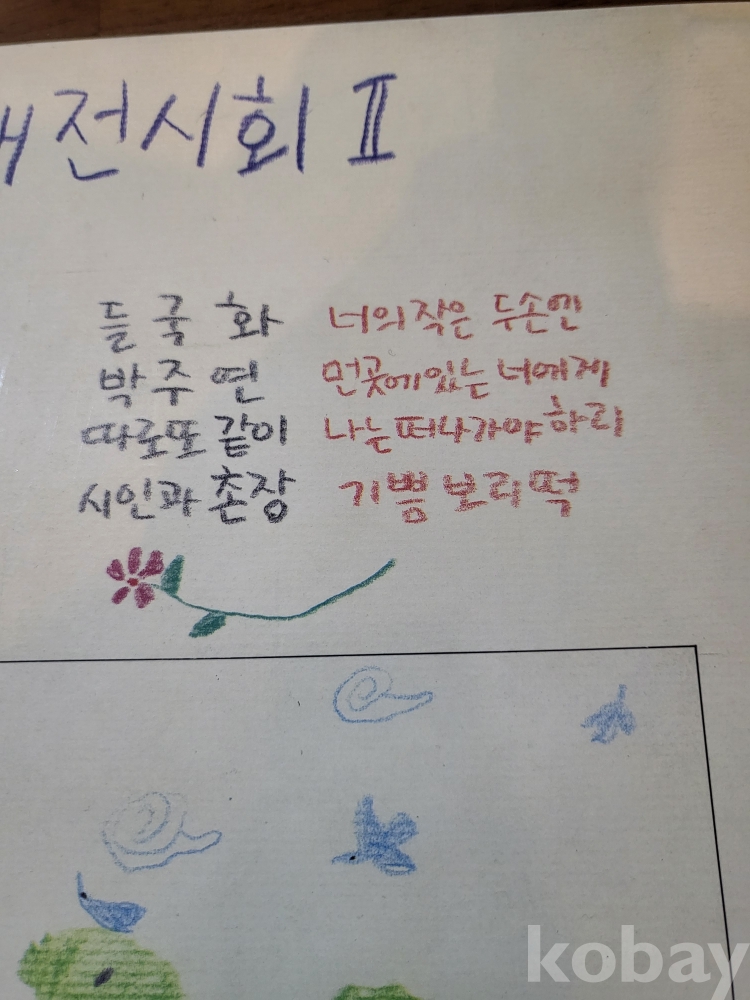 전시회 Ⅱ
들국화 너의작은 두손엔
박주연 먼곳에있는 너에게
따로또같이 나는떠나가야하리
시인과촌장 기쁨보리떡
kobay